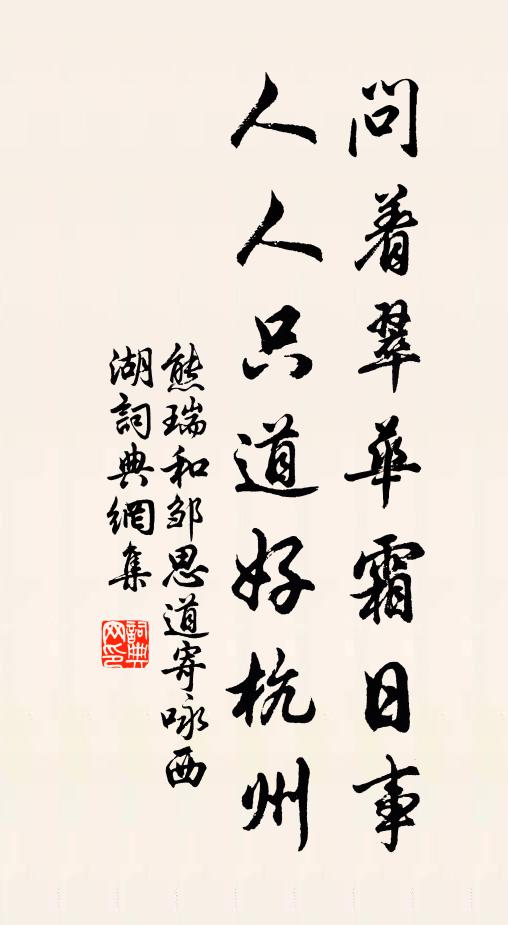 問着翠華霜日事
人人只道好杭州
熊瑞和邹思道寄咏西
湖詞典網集
詞典网印